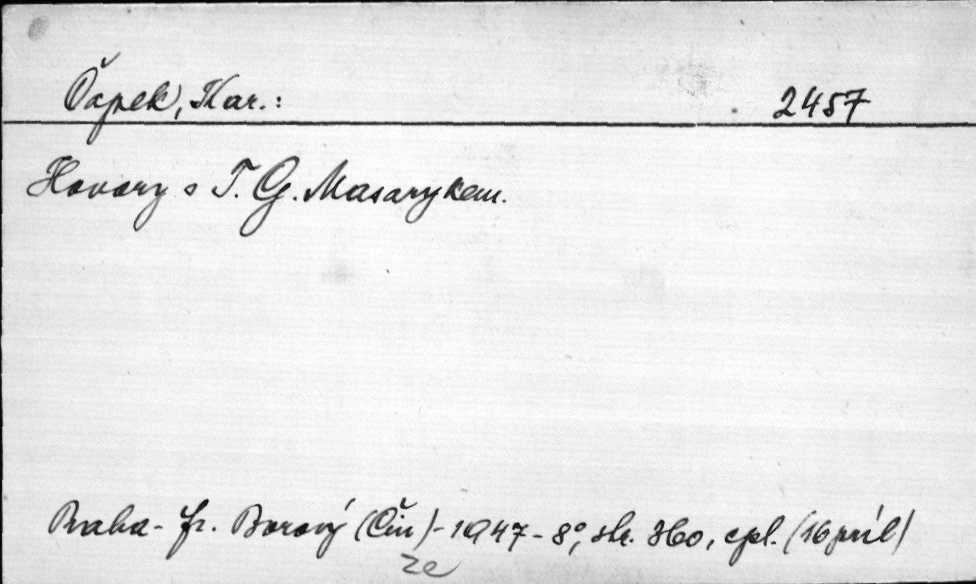 Čapek, Kar.: 2457
Hovory s T. G. Masarykem.
Praha - Fr. Borový (Čin) - 1947 - 8°, str. 360, cpl. (16 příl)
ze